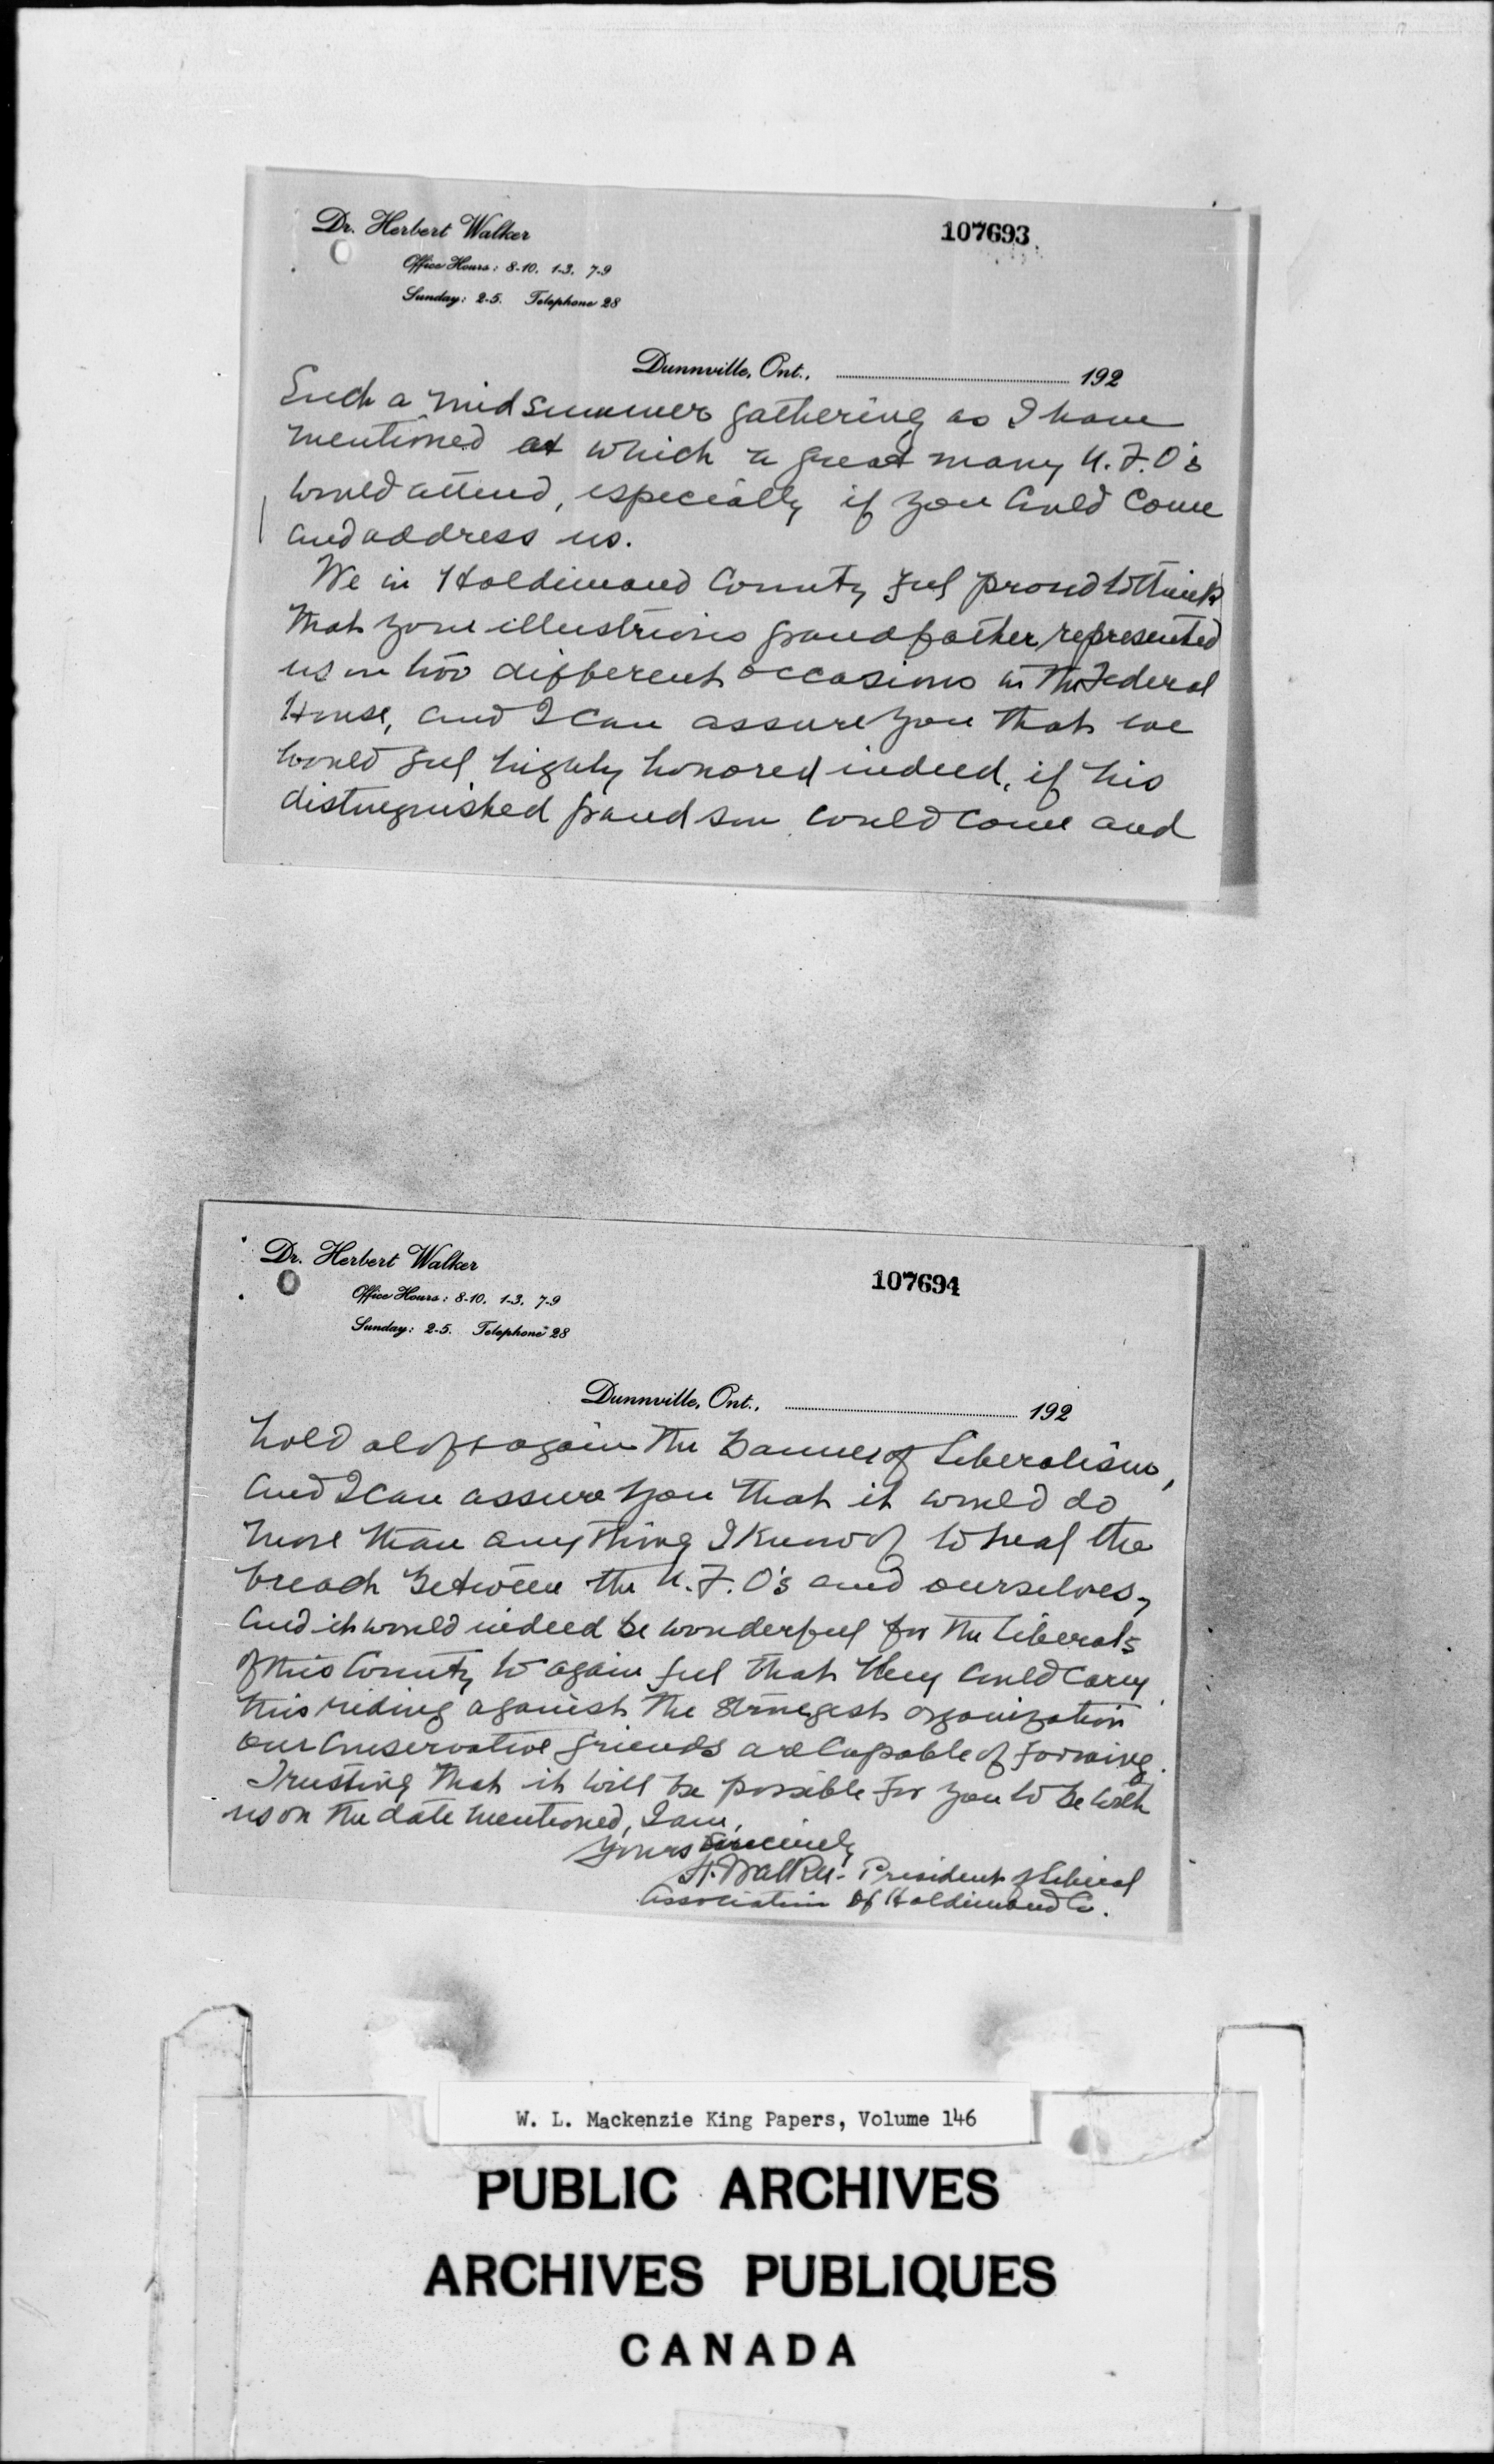 Dr. Herbert Walker
107693
Office Hours: 8-10. 1-3. 7-9
Sunday: 2-5. Telephone 28
Dunnville, Ont., 192
Such a midsummer gathering as I have
mentioned at which a great many U.F.O's
would attend, especially if you could come
and address us.
We in Haldimand County feel proud to think
that your illustrious grandfather represented
us on two different occasions in the Federal
House, and I can assure you that we
would feel highly honored indeed, if his
distinguished grandson could come and
Dr. Herbert Walker
107694
Office Hours: 8-10. 1-3. 7-9
Sunday: 2-5. Telephone 28
Dunnville, Ont., 192
hold aloft again the banner of Liberalism,
and I can assure you that it would do
more than anything I know of to heal the
breach between the U.F.O's and ourselves,
and it would indeed be wonderful for the Liberals
of this County to again feel that they could carry
this riding against the strongest organization
our Conservative friends are capable of forming.
Trusting that it will be possible for you to be with
us on the date mentioned, I am,
Yours Sincerely
H. Walker - President of Liberal
Association of Haldimand Co.
W. L. Mackenzie King Papers, Volume 146
PUBLIC ARCHIVES
ARCHIVES PUBLIQUES
CANADA